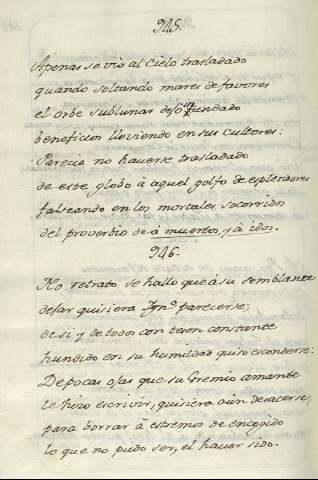 945.
Apenas se vió al Cielo trasladado
quando soltando mares de favores
el orbe sublunar dejó inundado
beneficios lloviendo en sus cultores:
Parecia no haverse trasladado
de este globo à aquel golfo de esplendores
falseando en los mortales socorridos
del proverbio de à muertos, y à idos.
946.
No retrato se halló que à su semblante
dejar quisiera Ign.º parecerse;
de si y de todos con teson constante
hundido en su humildad quiso esconderse:
De pocas ojas que su Gremio amante
le hizo escrivir, quisiera aùn desacerse,
para borrar à estremos de encogido
lo que no pudo ser, el haver sido.